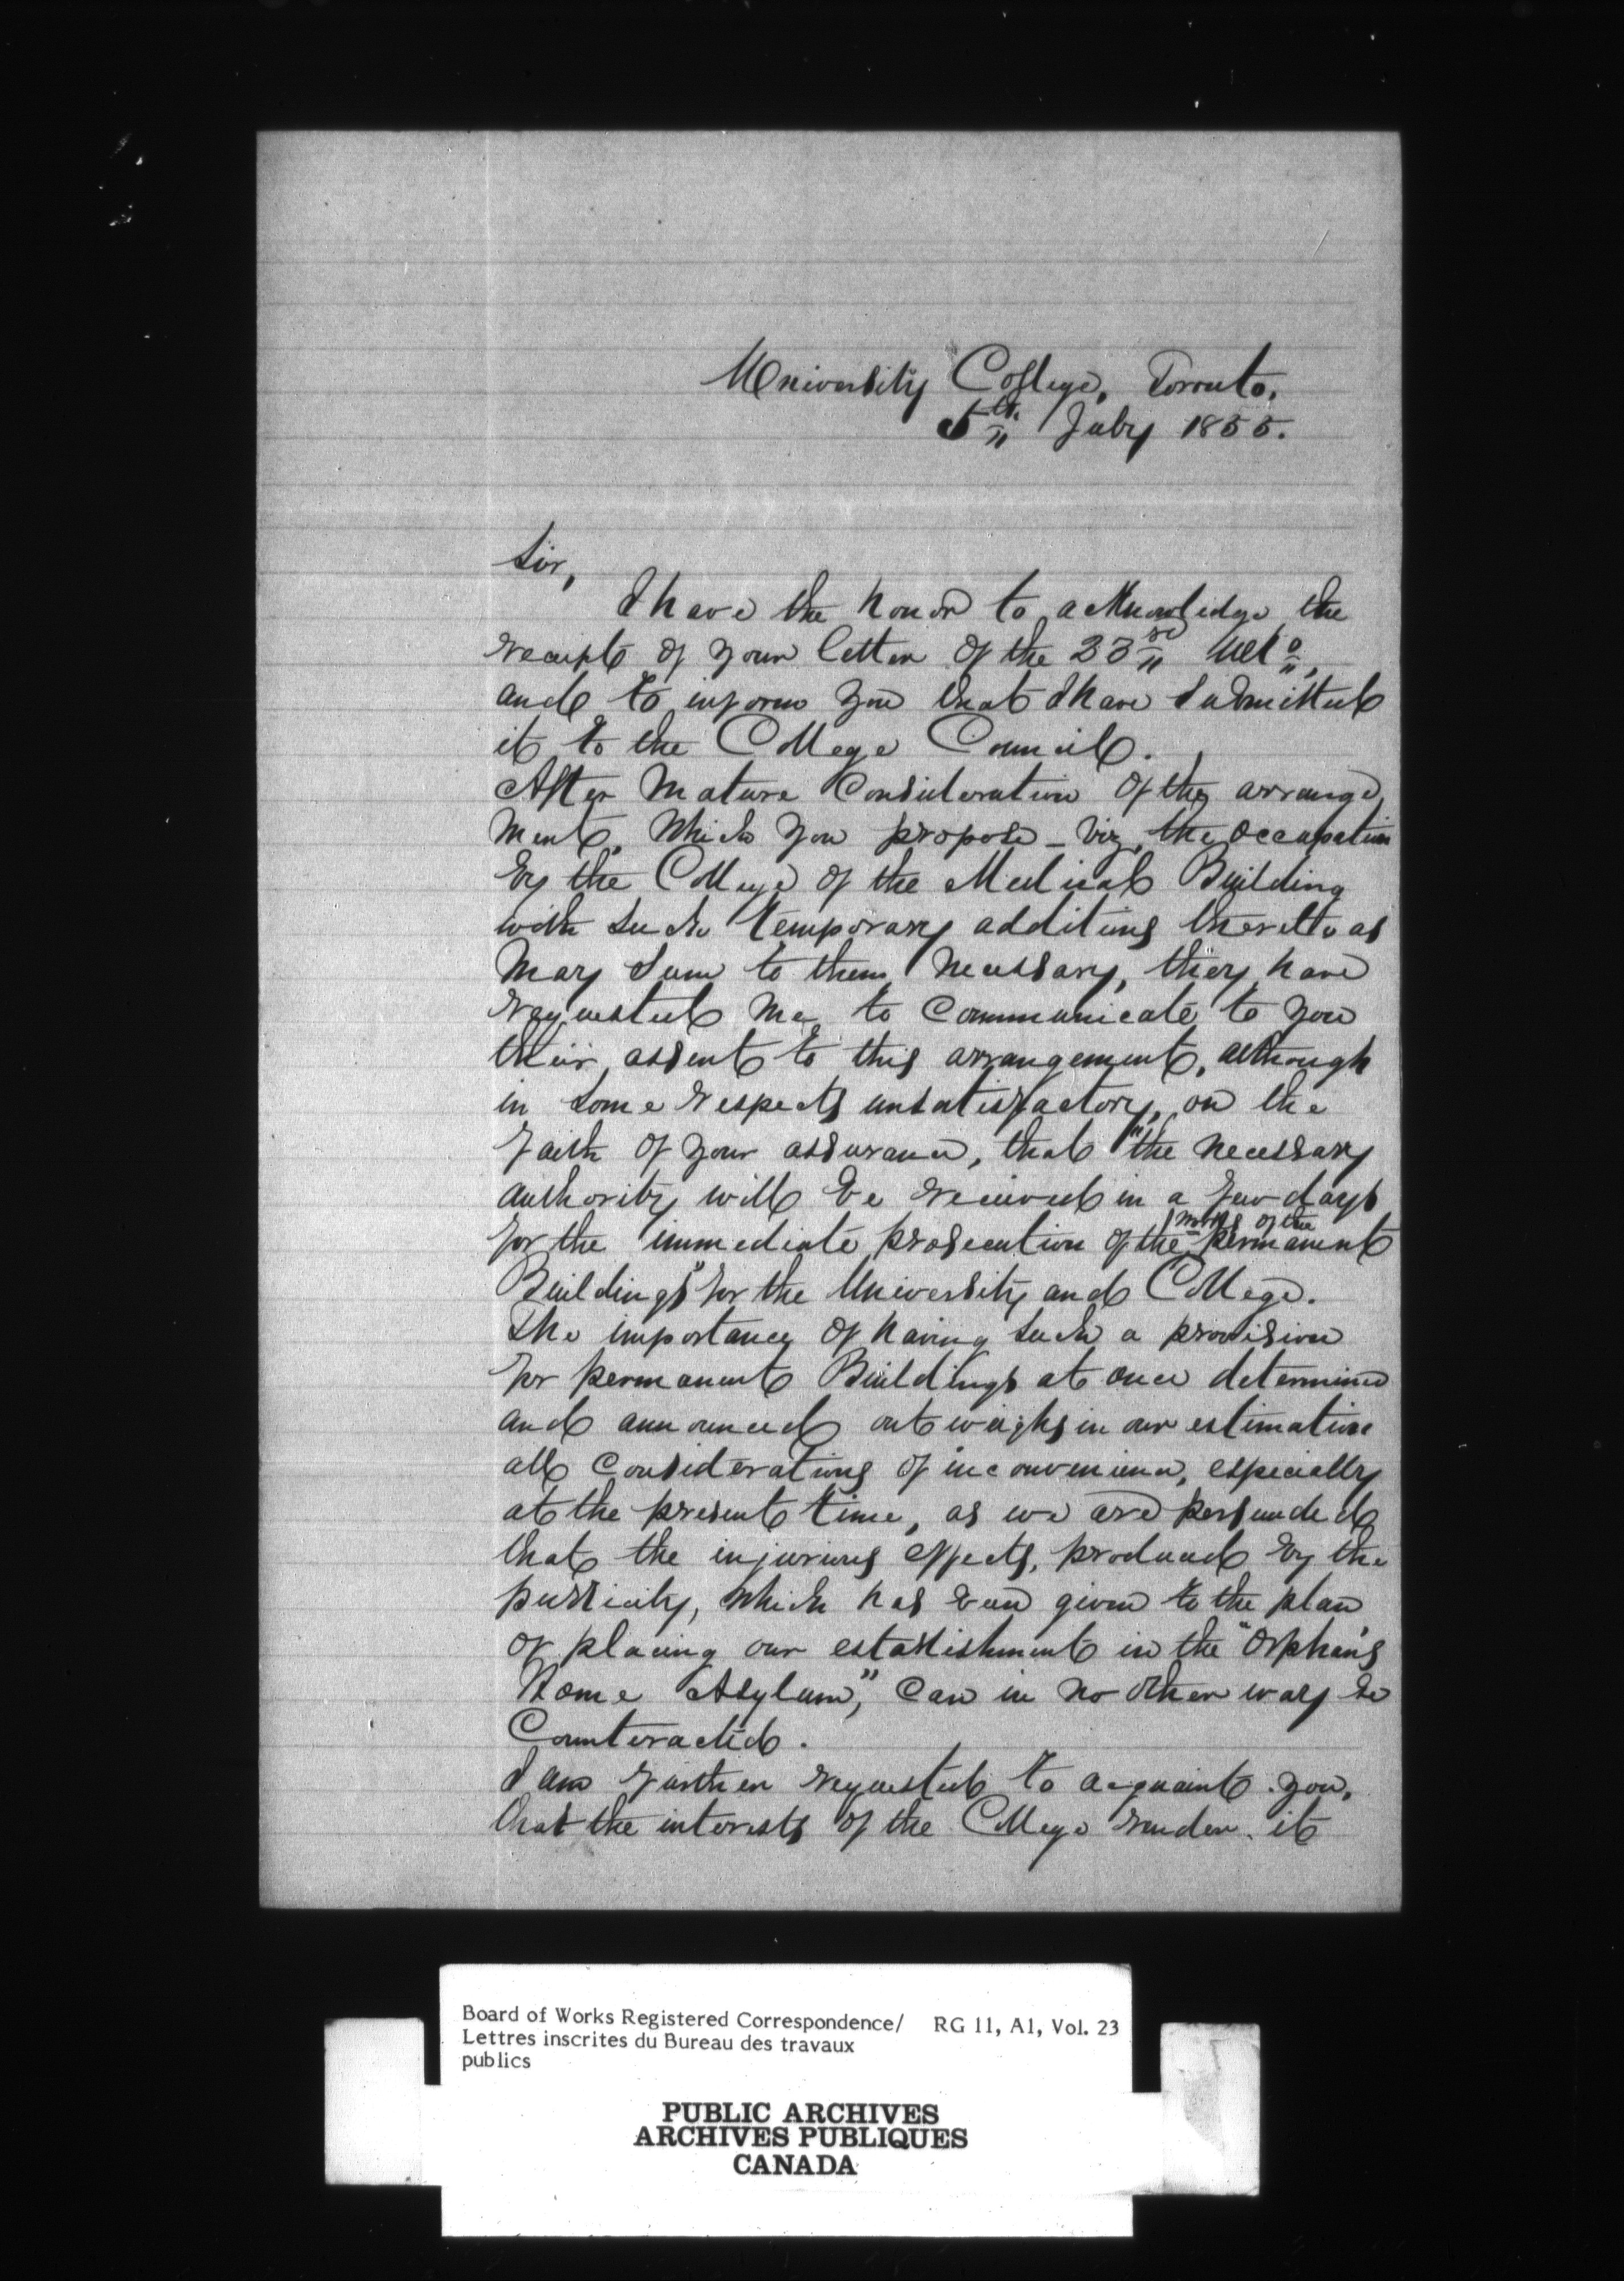 University College, Toronto,
5th July 1855.
Sir,
I have the honor to acknowledge the
receipt of your letter of the 23rd Ulto,
and to inform you that I have submitted
it to the College Council.
After mature consideration of the arrange
ment, which you propose - viz, the occupation
by the College of the Medical Building
with such temporary additions thereto as
may seem to them necessary, they have
requested me to communicate to you
their assent to this arrangement, although
in some respects unsatisfactory, on the
faith of your assurance, that "the necessary
authority will be received in a few days
for the immediate prosecution of the works of the permanent
Buildings" for the University and College.
The importance of having such a provision
for permanent Buildings at once determined
and announced outweighs in our estimation
all considerations of inconvenience, especially
at the present time, as we are persuaded
that the injurious effects, produced by the
publicity, which has been given to the plan
of placing our establishment in the "Orphan's
Home Asylum", can in no other way be
Counteracted.
I am further requested to acquaint you,
that the interests of the College render it
Board of Works Registered Correspondence/ RG 11, A1, Vol. 23
Lettres inscrites du Bureau des travaux
publics
PUBLIC ARCHIVES
ARCHIVES PUBLIQUES
CANADA